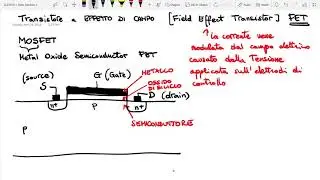 Transistore a EFFETTO DI CAMPO [Field Effect Transistor] FET
↑ la corrente viene
modulata dal campo elettrico
causato dalla Tensione
applicata sull'elettrodo di
controllo
MOSFET
Metal Oxide Semiconductor FET
(source)
S
G (Gate)
METALLO
OSSIDO
DI SILICIO
D (drain)
n+
P
n+
SEMICONDUTTORE
P